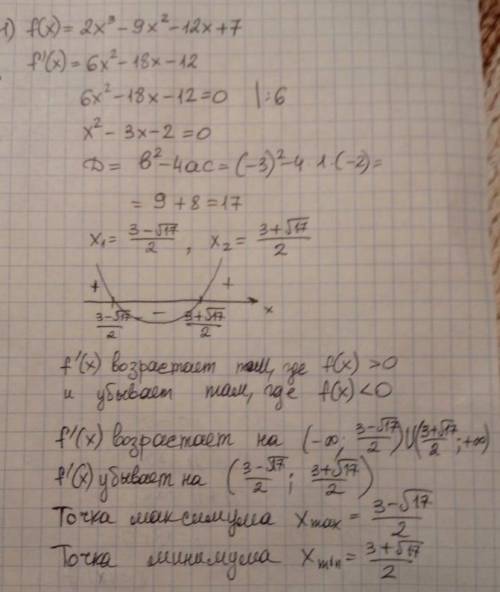 1) f(x) = 2x³ - 9x² - 12x + 7
f'(x) = 6x² - 18x - 12
6x² - 18x - 12 = 0 | :6
x² - 3x - 2 = 0
D = b² - 4ac = (-3)² - 4 · 1 · (-2) =
= 9 + 8 = 17
x₁ = (3-√17)/2 , x₂ = (3+√17)/2
+ − +
(3-√17)/2 (3+√17)/2 x
f'(x) возрастает там, где f(x) > 0
и убывает там, где f(x) < 0
f'(x) возрастает на (-∞; (3-√17)/2) ∪ ((3+√17)/2; +∞)
f'(x) убывает на ((3-√17)/2; (3+√17)/2)
Точка максимума xmax = (3-√17)/2
Точка минимума xmin = (3+√17)/2